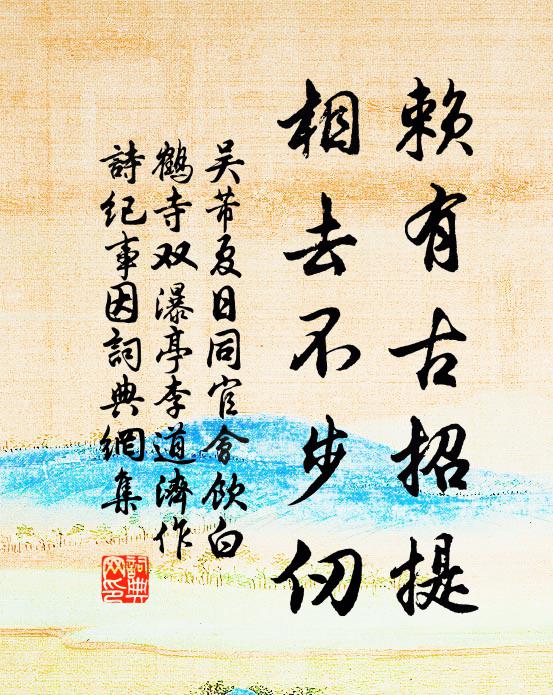 赖有古招提
相去不步仞
吴芾夏日同官会饮白
鹤寺双瀑亭李道濟作
詩纪事因詞典網集
詞典
网印